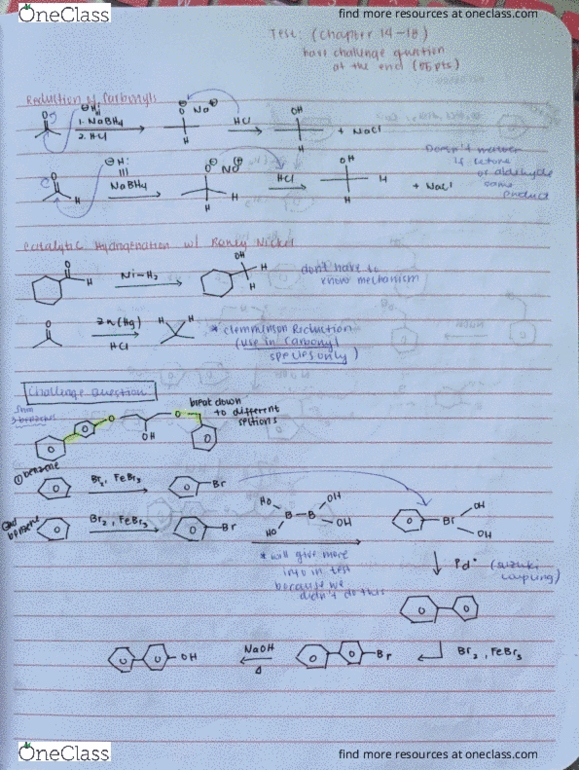 OneClass
find more resources at oneclass.com
Test: (Chapter 14-18)
hard challenge question
at the end (55pts)
Reduction of Carbonyls
1. NaBH4
2. HCl
O Na
HCl
OH
H
+ NaCl
H:
NaBH4
O
H
HCl
OH
H
H
+ NaCl
Doesn't matter
if ketone
or aldehyde
same
product
Catalytic Hydrogenation w/ Raney Nickel
O
H
Ni-H2
OH
H
H
don't have to
know mechanism
O
Zn(Hg)
HCl
H
H
* clemminson Reduction
(use in carbonyl
species only)
Challenge Question:
O
OH
O
break down
to different
sections
① benzene
Br2, FeBr3
Br
2nd
benzene
Br2, FeBr3
Br
HO
OH
B-B
HO
OH
* will give more
info in test
because we
didn't do this
Br
OH
OH
Pd°
(suzuki
coupling)
Br2, FeBr3
Br
NaOH
Δ
OH
OneClass
find more resources at oneclass.com